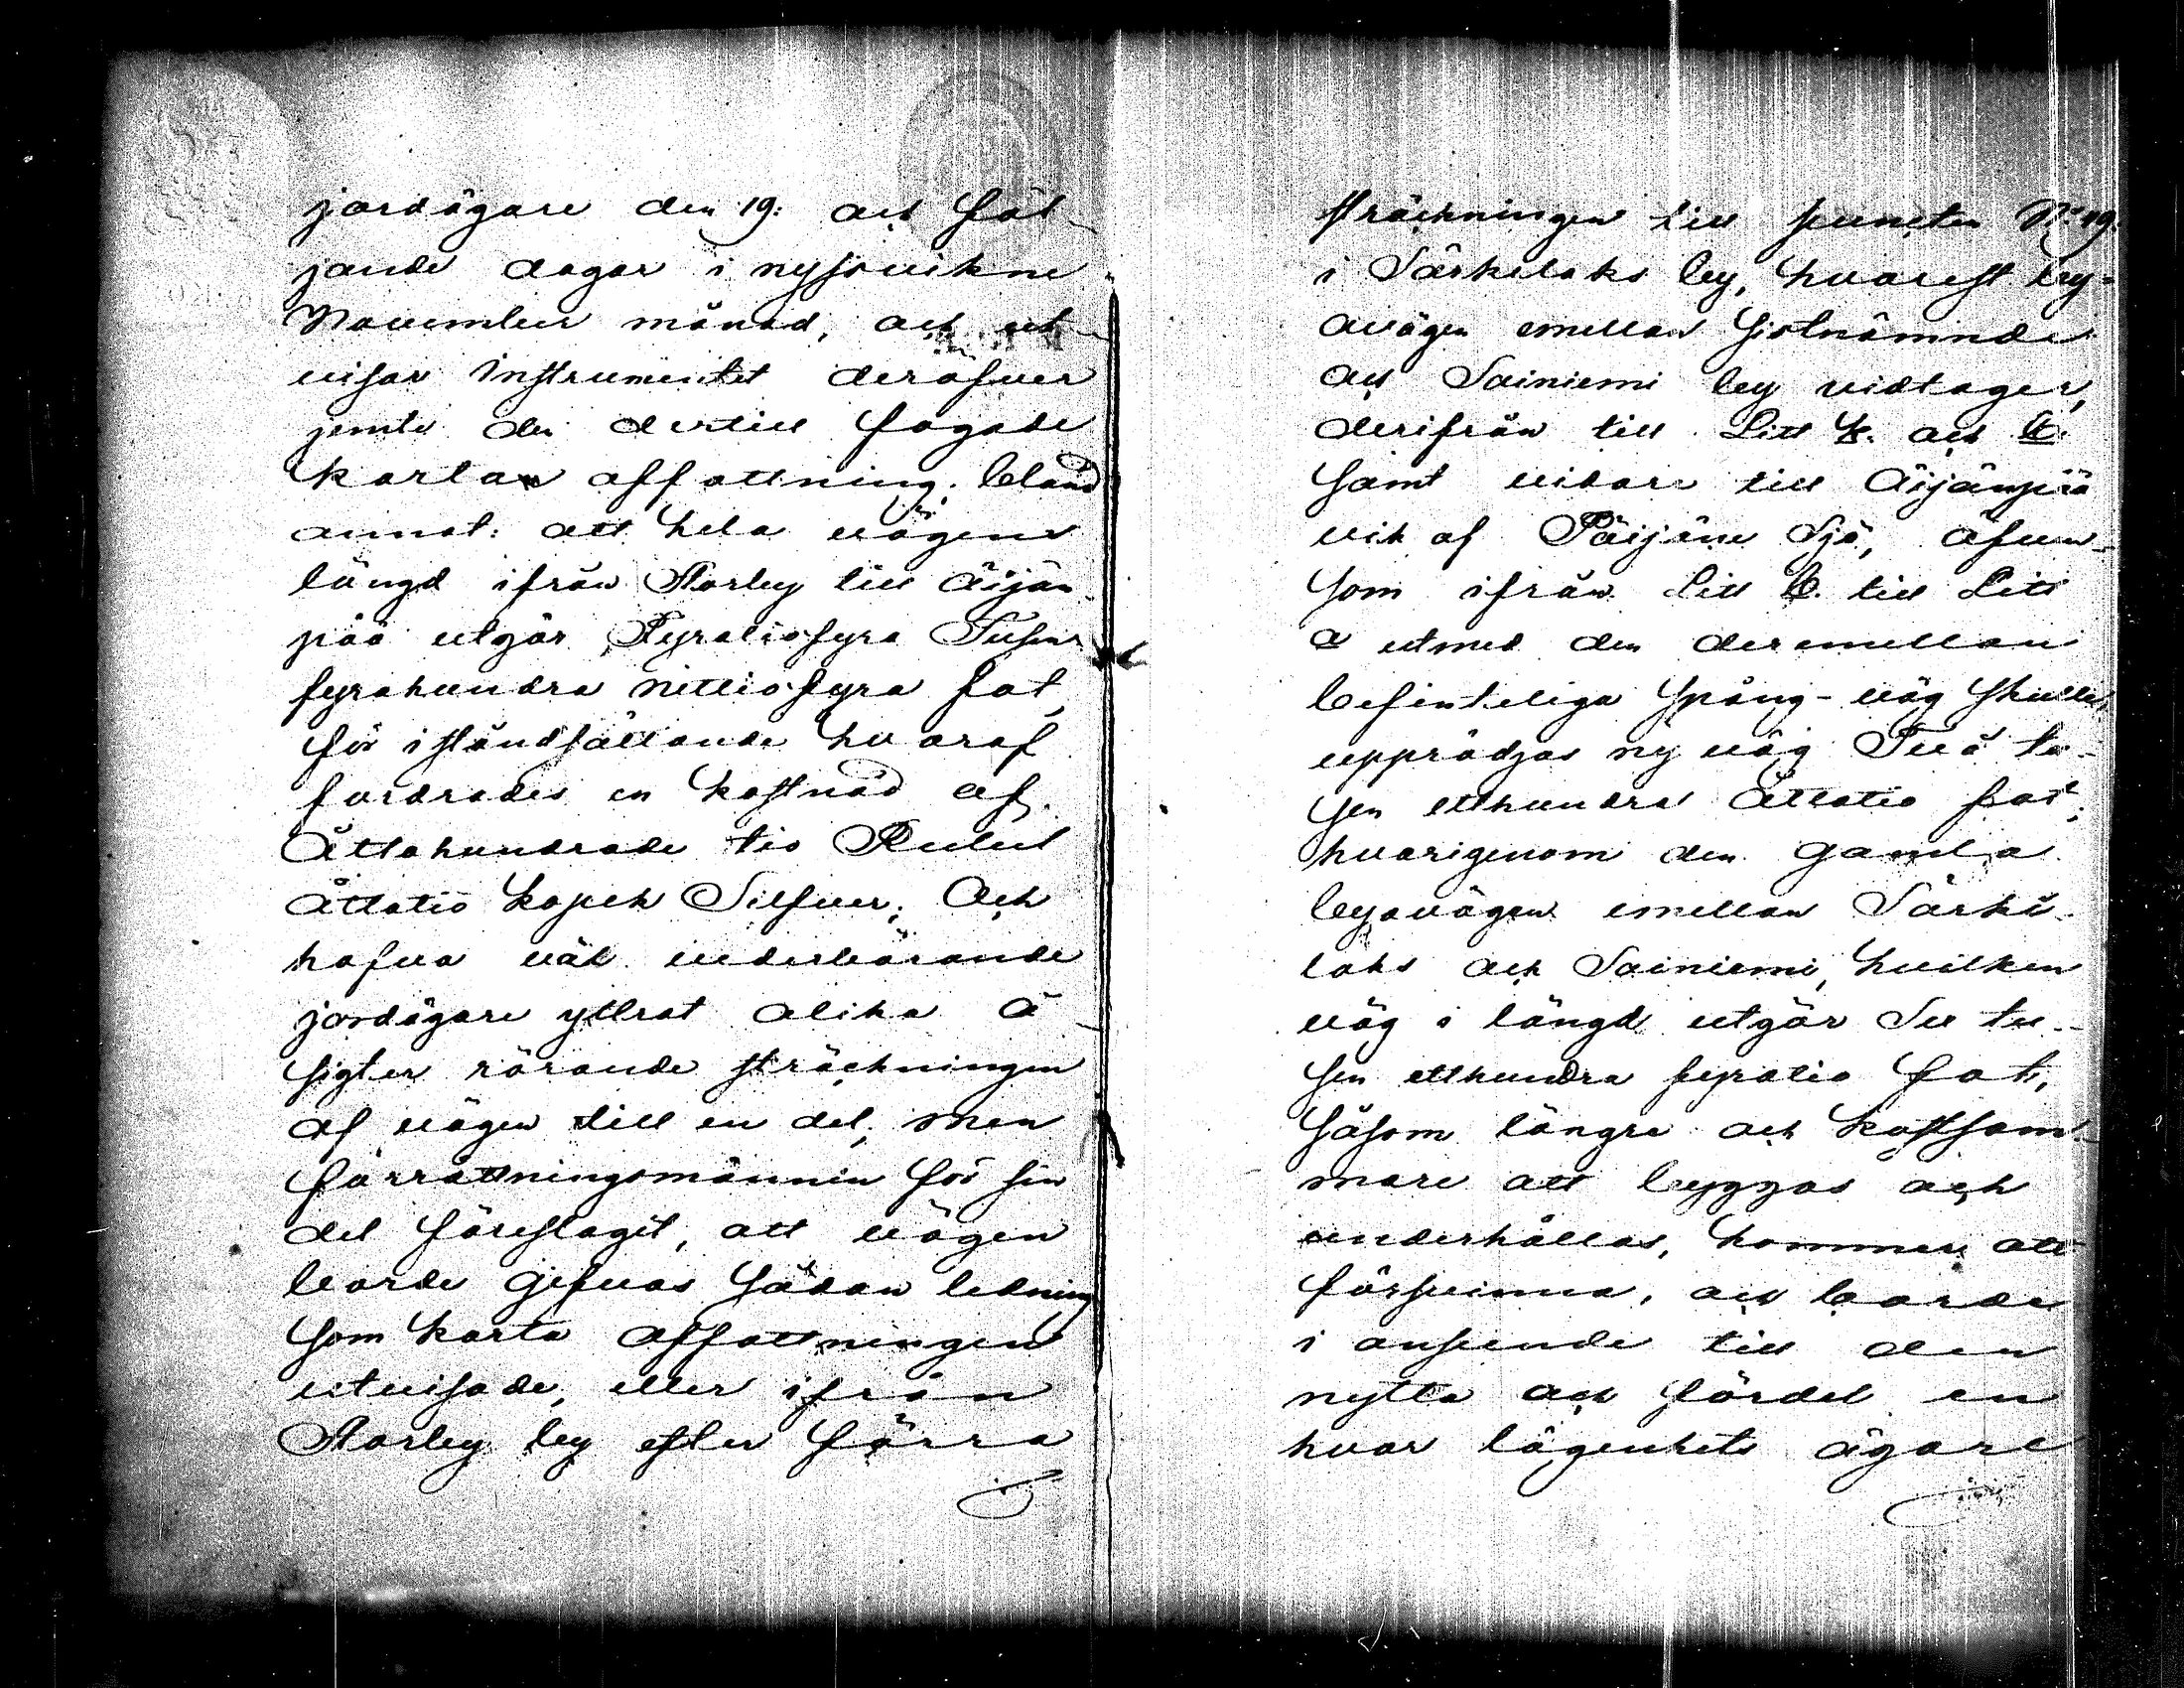 jordägare den 19: och föl-
jande dagar i nyssvikne
November månad, och ut-
visar Instrumentet deröfver
jemte den dertill fogade
kartax affattning. bland
annat: att hela vägens
längd ifrån Storby till Äijän
pää utgör Fyratiofyra Tusen
fyrahundra nittiofyra fot,
för iståndsättande hvaraf
fordrades en kostnad af
Åttahundrade tio Rubel
Åttatio kopek Silfver; Och
hafva väl vederbörande
jordägare yttrat olika å-
sigter rörande sträckningen
af vägen till en del, men
förrättningsmännin för sin
del föreslagit, att vägen
borde gifvas sådan ledning
som karta affattningen
utvisade, eller ifrån
Storby by efter förra
sträckningen till puncten No 19.
i Särkelaks by, hvarest by-
avägen emellan sistnämnde
och Sainiemi by vidtager,
derifrån till Litt och
samt vidare till Äijänpää
vik af Päijäne Sjö, äfven-
som ifrån Litt b. till Litt
a utmed den deremellan
befinteliga spång-väg skulle
upprödjas ny väg Två tu-
sen etthundra Åttatio fot;
hvarigenom den gamla
byavägen emellan Särki
laks och Sainiemi, hvilken
väg i längd utgör Sju tu-
sen etthundra fyratio fot,
såsom längre och kostsam-
mare att byggas och
underhållas, kommer att
försvinna, och borde
i anseende till den
nytta och fördel en
hvar lägenhets ägare